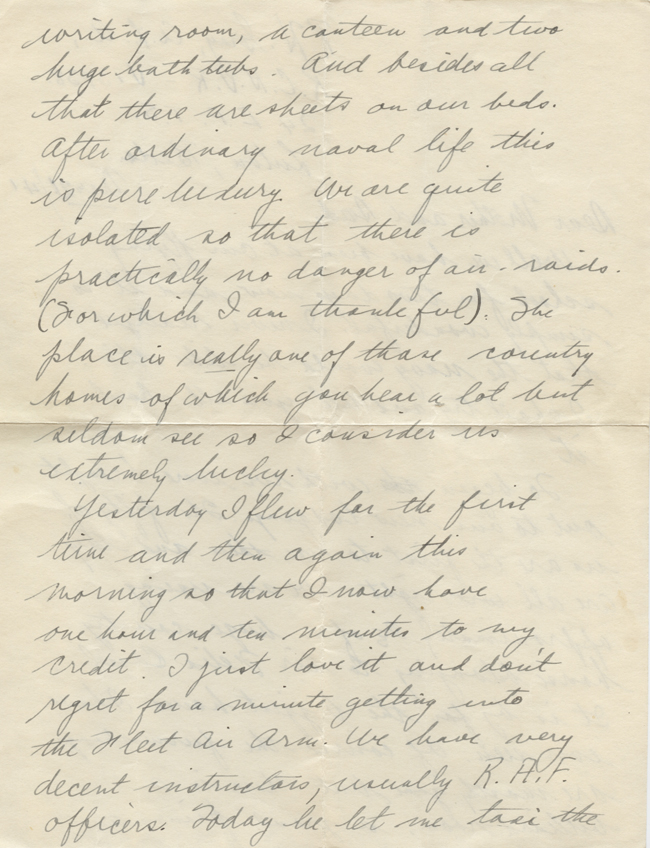 writing room, a canteen and two
huge bath tubs. And besides all
that there are sheets on our beds.
After ordinary naval life this
is pure luxury. We are quite
isolated so that there is
practically no danger of air-raids.
(For which I am thankful). The
place is really one of those country
homes of which you hear a lot but
seldom see so I consider us
extremely lucky.
Yesterday I flew for the first
time and then again this
morning so that I now have
one hour and ten minutes to my
credit. I just love it and don't
regret for a minute getting into
the Fleet Air Arm. We have very
decent instructors, usually R.A.F.
officers. Today he let me taxi the